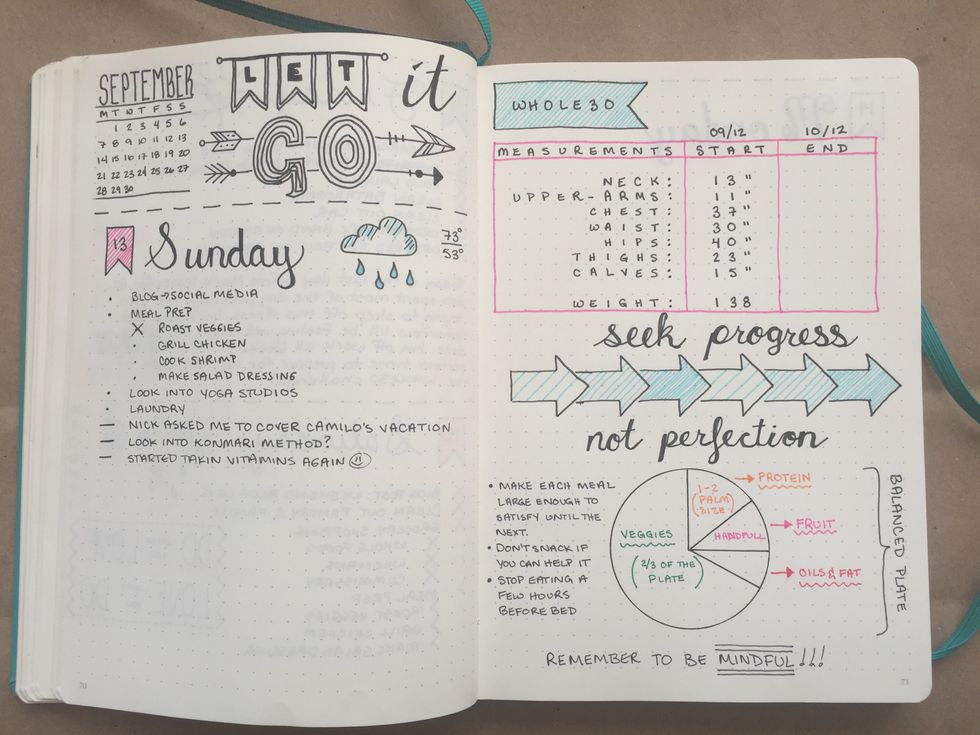 SEPTEMBER
M T W T F S S
1 2 3 4 5 6
7 8 9 10 11 12 13
14 15 16 17 18 19 20
21 22 23 24 25 26 27
28 29 30
LET it
GO
13 Sunday
73°
53°
• BLOG → SOCIAL MEDIA
• MEAL PREP
X ROAST VEGGIES
• GRILL CHICKEN
• COOK SHRIMP
• MAKE SALAD DRESSING
• LOOK INTO YOGA STUDIOS
• LAUNDRY
— NICK ASKED ME TO COVER CAMILO'S VACATION
— LOOK INTO KONMARI METHOD?
— STARTED TAKIN VITAMINS AGAIN
70
WHOLE30
09/12 10/12
MEASUREMENTS START END
NECK: 13"
UPPER-ARMS: 11"
CHEST: 37"
WAIST: 30"
HIPS: 40"
THIGHS: 23"
CALVES: 15"
WEIGHT: 138
seek progress
not perfection
• MAKE EACH MEAL
LARGE ENOUGH TO
SATISFY UNTIL THE
NEXT.
• DON'T SNACK IF
YOU CAN HELP IT
• STOP EATING A
FEW HOURS
BEFORE BED
VEGGIES
(2/3 OF THE
PLATE)
1-2
(PALM
SIZE)
→ PROTEIN
HANDFULL
→ FRUIT
→ OILS & FAT
BALANCED PLATE
REMEMBER TO BE MINDFUL!!!
71